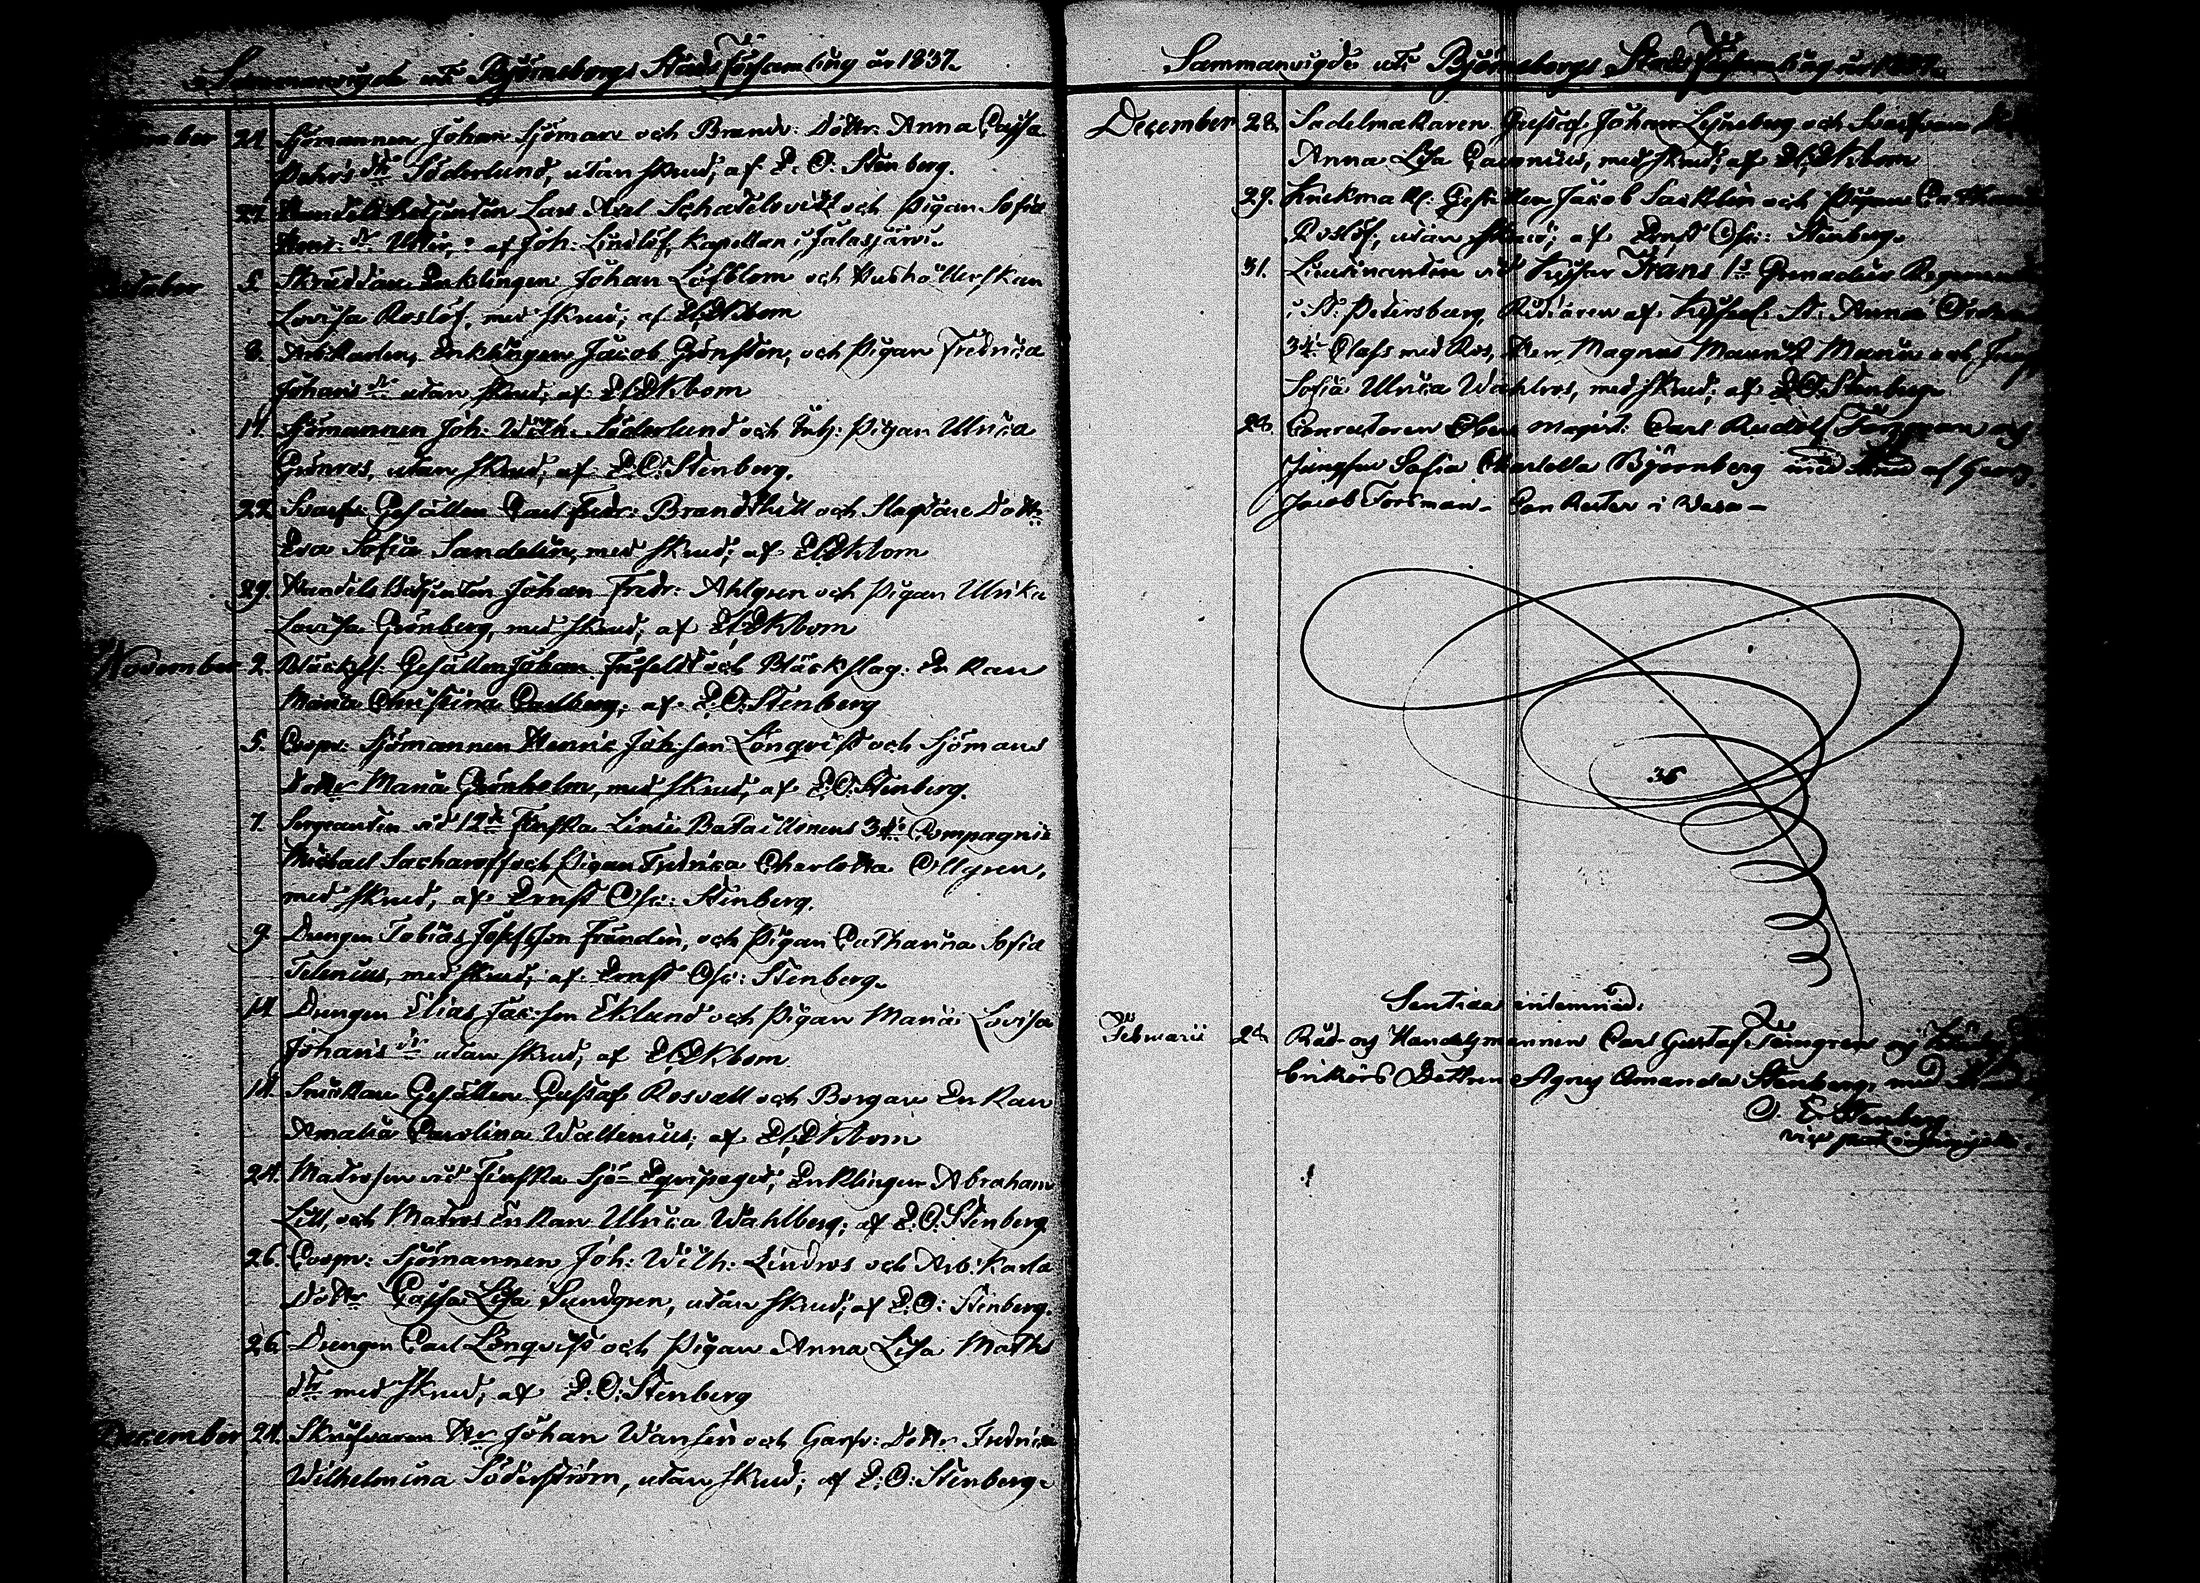 Sammanvigde uti Björneborgs Stads Församling år 1837.
24. Sjömannen Johan Sjöman och Brandv: Dottr: Anna Cajsa
Pehrs dtr Söderlund, utan skrud; af E: O: Stenberg.
27. Handels betjenten Lars Axel och Pigan Sofia
af Joh: Lindlöf, Kapellan i Jalasjärvi.
October 5. Skräddare Enklingen Johan Löfblom och Hushållerskan
Lovisa Roslöf, med skrud; af Ekbom
8. Arbkarlen, Enklingen Jacob Grönsten, och Pigan Fredrica
Johans dr utan skrud; af Ekbom
17. Sjömannen Joh: Wilh: Söderlund och Pigan Ulrica
Grönros, utan skrud; af E.O: Stenberg.
22. Svarfv: Gesällen Carl Fredr: Brandt och Dottr:
Eva Sofia Sandelin, med skrud; af Ekbom
29. Handels Betjenten Johan Fredr: Ahlgren och Pigan Ulrika
Lovisa Grönberg, med skrud; af Ekbom
November 2. Bläcksl: Gesällen Johan och Bläckslag: Enkan
Maria Christina Carlberg; af E.O: Stenberg
5. Coopv: Sjömannen Henric Joh:son Lönqvist och Sjömans
Dottr Maria Grönholm, med skrud; af E.O: Stenberg.
7. Sergeanten vid 12te Finska Linie Bataillonens 3die Compagnie
Michael Sacharoff och Pigan Fredrica Charlotta Ollgren,
med skrud; af Ernst Osc: Stenberg.
9. Drengen Tobias Josefsson Frandin, och Pigan Catharina Sofia
Telenius, med skrud; af Ernst Osc: Stenberg.
14. Drengen Elias Jac:son Eklund och Pigan Maria Lovisa
Johans dr utan skrud; af Ekbom
Gesällen Gustaf Rosvall och Borgare Enkan
Amalia Carolina Wallenius; af Ekbom
24. Matrosen vid Finska Sjö-Equipaget, Enklingen Abraham
Lill, och Matros Enkan Ulrica Wahlberg; af E.O: Stenberg
26. Coopv: Sjömannen Joh: Wilh: Lindros och Arb:karls
Dottr Cajsa Lisa Sundgren, utan skrud; af E:O: Stenberg.
26. Drengen Carl Lönqvist och Pigan Anna Lisa Maths
dtr med skrud; af E.O: Stenberg
December 21. Skräfvaren Hr Johan Wansen och Garfv: Dottr Fredrica
Wilhelmina Söderström, utan skrud; af E:O: Stenberg.
Sammanvigde uti Björneborgs Stads Församling år 1837.
December 28. Sadelmakaren Gustaf Johan Lijneberg och
Anna Lisa med skrud; af Ekbom
29. Gesällen Jacob Sacklin och Pigan
Roslöf, utan skrud; af Ernst Osc: Stenberg.
31. Lieutnanten vid Kejsar Frans 1s Grenadier Regemente
i St: Petersburg, Riddaren af Kejserl: St: Annæ Orden
3die Class med Ros, Herr Magnus
Sofia Ulrica Wahlros, med skrud; af E.O: Stenberg.
28. Conrectoren Carl Rudolf Forsman och
Jungfru Sofia Charlotta Björnberg med skrud af
Jacob Forsman - Conrector i Wasa -
36
Sentida
Februarii 2d Råd- och Handelsmannen Carl Gustaf och
Dottren Agnes Amanda Stenberg, med
O. E. Stenberg
vice